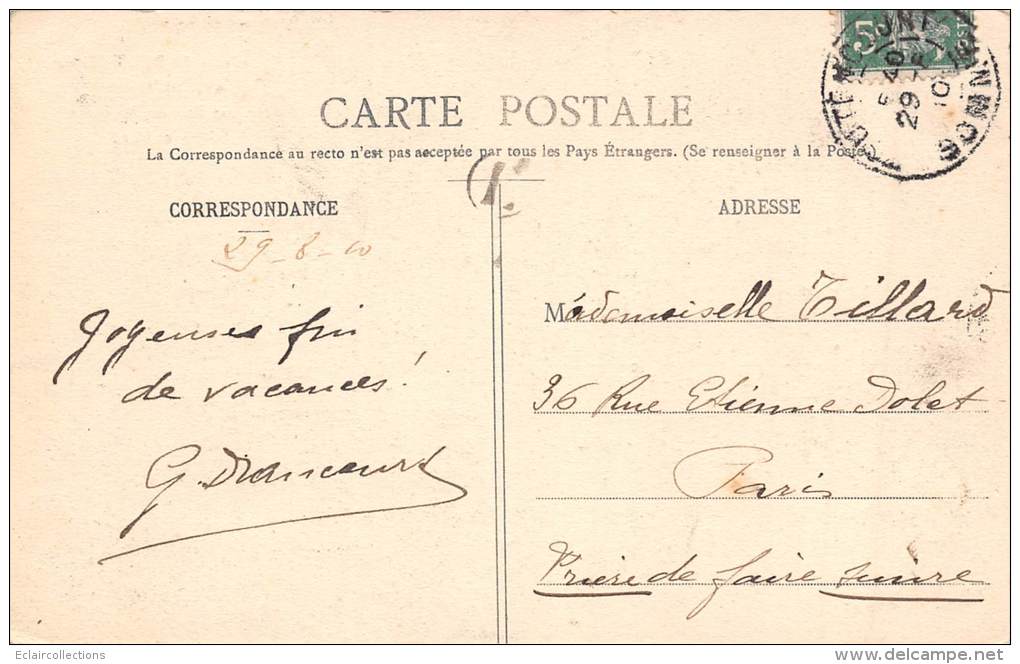 CARTE POSTALE
La Correspondance au recto n'est pas acceptée par tous les Pays Étrangers. (Se renseigner à la Poste)
CORRESPONDANCE
29-8-10
Joyeuses fin
de vacances!
G. Drancourt
ADRESSE
Mademoiselle Tillard
36 Rue Etienne Dolet
Paris
Prière de faire suivre
5
29
10
SOMME
Eclaircollections
www.delcampe.net